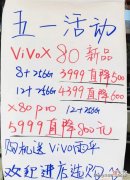 五一活动
ViVoX 80 新品
8+256G 3999 直降500
12+256G 4399 直降600
X80 pro 12+256G
5999直降800元
购机送ViVo雨伞
欢迎进店选购